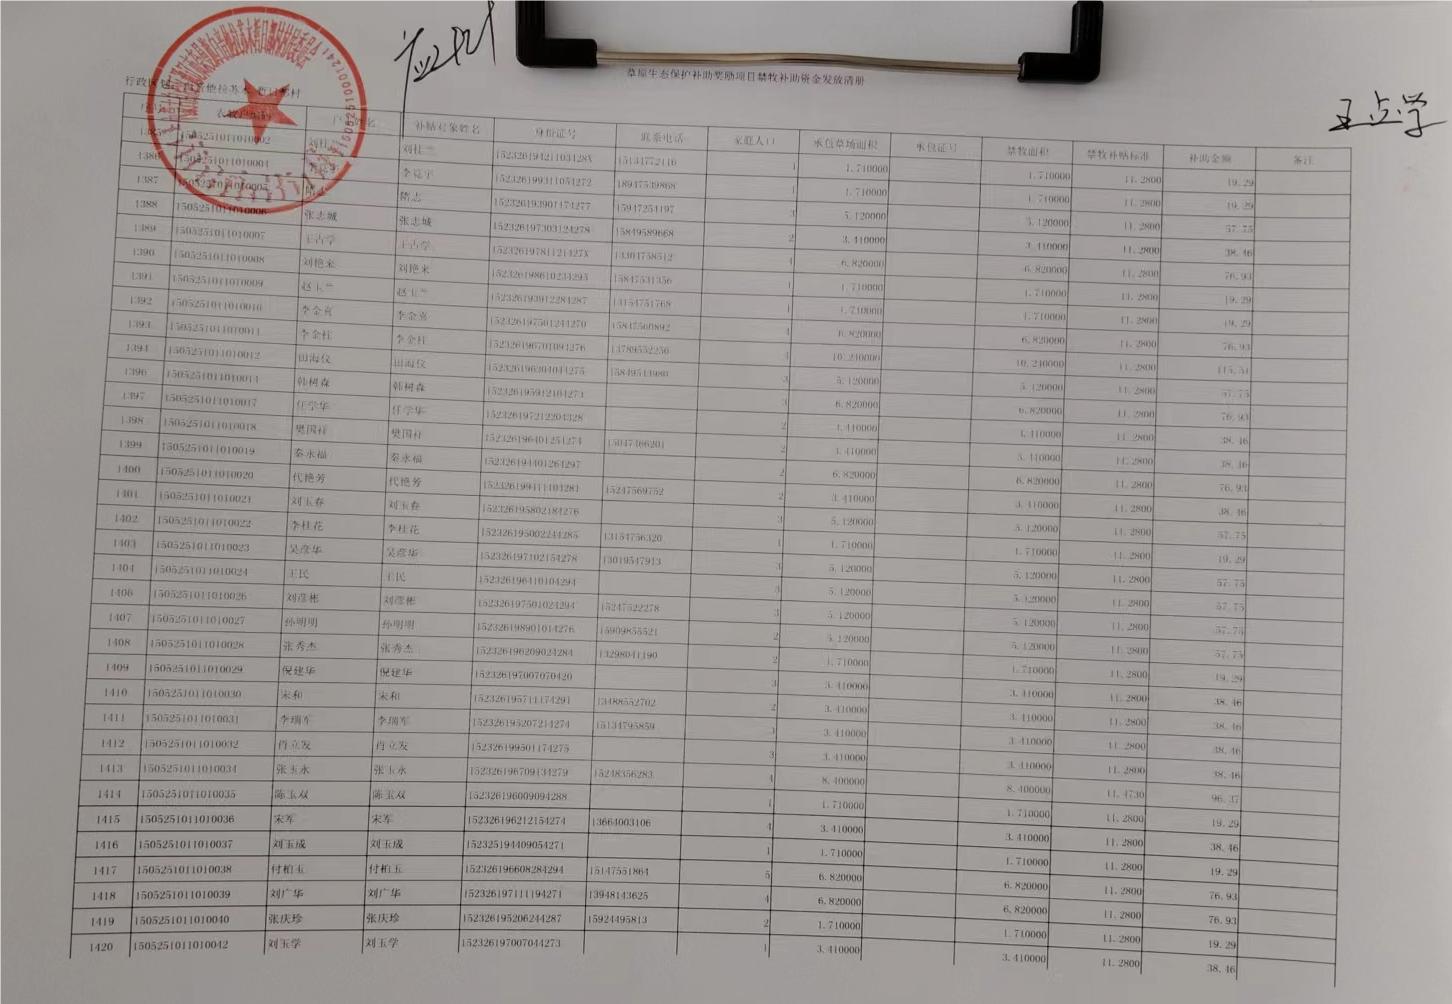 应收时
王占学
草原生态保护补助奖励项目禁牧补助资金发放清册
补贴对象姓名 身份证号 联系电话 家庭人口 承包草场面积 承包证号 禁牧面积 禁牧补贴标准 补助金额 备注
1385 1505251011010002 15232619421103128X 15134772116 1 1.710000 1.710000 11.2800 19.29
1386 1505251011010004 152326199311054272 18947539868 1 1.710000 1.710000 11.2800 19.29
1387 1505251011010005 隋志 152326193901174277 15947254197 3 5.120000 5.120000 11.2800 57.75
1388 1505251011010006 张志城 张志城 152326197303124278 15849589668 2 3.410000 3.410000 11.2800 38.46
1389 1505251011010007 王占学 王占学 15232619781121427X 13304758512 4 6.820000 6.820000 11.2800 76.93
1390 1505251011010008 刘艳来 刘艳来 152326198610234295 15847531356 1 1.710000 1.710000 11.2800 19.29
1391 1505251011010009 赵玉兰 赵玉兰 152326193912284287 13154751768 1 1.710000 1.710000 11.2800 19.29
1392 1505251011010010 李金喜 李金喜 152326197501244270 15847560892 4 6.820000 6.820000 11.2800 76.93
1393 1505251011010011 李金柱 李金柱 152326196701094276 13789552256 3 10.240000 10.240000 11.2800 115.51
1394 1505251011010012 田海仪 田海仪 152326196304044275 15849513980 3 5.120000 5.120000 11.2800 57.75
1396 1505251011010014 韩树森 韩树森 152326195912104273 3 6.820000 6.820000 11.2800 76.93
1397 1505251011010017 任学华 任学华 152326197212204328 2 3.410000 3.410000 11.2800 38.46
1398 1505251011010018 樊国祥 樊国祥 152326196401251274 15047466201 2 3.410000 3.410000 11.2800 38.46
1399 1505251011010019 秦永福 秦永福 152326194401264297 2 6.820000 6.820000 11.2800 76.93
1400 1505251011010020 代艳芳 代艳芳 152326199411104281 15247569752 2 3.410000 3.410000 11.2800 38.46
1401 1505251011010021 刘玉春 刘玉春 152326195802184276 3 5.120000 5.120000 11.2800 57.75
1402 1505251011010022 李桂花 李桂花 152326195002244285 13154756320 1 1.710000 1.710000 11.2800 19.29
1403 1505251011010023 吴彦华 吴彦华 152326197102154278 13019547913 3 5.120000 5.120000 11.2800 57.75
1404 1505251011010024 王民 王民 152326196410104294 3 5.120000 5.120000 11.2800 57.75
1406 1505251011010026 刘彦彬 刘彦彬 152326197501024294 15247522278 3 5.120000 5.120000 11.2800 57.75
1407 1505251011010027 孙明明 孙明明 152326198901014276 15909855521 2 5.120000 5.120000 11.2800 57.75
1408 1505251011010028 张秀杰 张秀杰 152326196209024284 13298041190 2 1.710000 1.710000 11.2800 19.29
1409 1505251011010029 倪建华 倪建华 152326197007070420 3 3.410000 3.410000 11.2800 38.46
1410 1505251011010030 宋和 宋和 152326195711174291 13488552702 2 3.410000 3.410000 11.2800 38.46
1411 1505251011010031 李瑞军 李瑞军 152326195207214274 15134795859 3.410000 3.410000 11.2800 38.46
1412 1505251011010032 肖立发 肖立发 152326199501174275 3 3.410000 3.410000 11.2800 38.46
1413 1505251011010034 张玉永 张玉永 152326196709134279 15248356283 4 8.400000 8.400000 11.4730 96.37
1414 1505251011010035 陈玉双 陈玉双 152326196009094288 1 1.710000 1.710000 11.2800 19.29
1415 1505251011010036 宋军 宋军 152326196212154274 13664003106 4 3.410000 3.410000 11.2800 38.46
1416 1505251011010037 刘玉成 刘玉成 152325194409054271 1 1.710000 1.710000 11.2800 19.29
1417 1505251011010038 付柏玉 付柏玉 152326196608284294 15147551864 5 6.820000 6.820000 11.2800 76.93
1418 1505251011010039 刘广华 刘广华 152326197111194271 13948143625 4 6.820000 6.820000 11.2800 76.93
1419 1505251011010040 张庆珍 张庆珍 152326195206244287 15924495813 2 1.710000 1.710000 11.2800 19.29
1420 1505251011010042 刘玉学 刘玉学 152326197007044273 1 3.410000 3.410000 11.2800 38.46